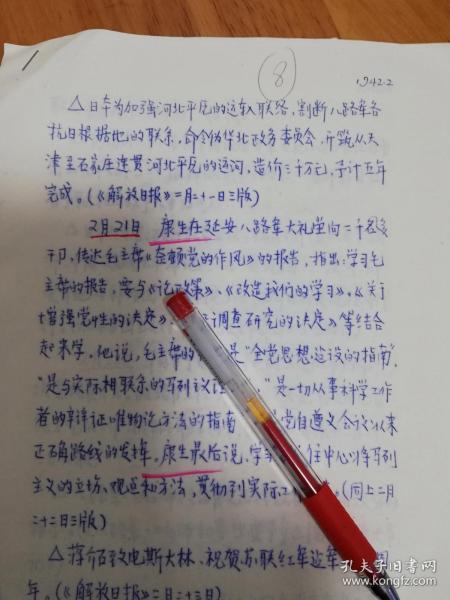 ⑧
1942.2
△日本为加强河北平原的运输联络,割断八路军各
抗日根据地的联系,命令伪华北政务委员会,开凿从天
津至石家庄连贯河北平原的运河,造价三千万元,予计五年
完成。(《解放日报》二月二十一日三版)
2月21日 康生在延安八路军大礼堂向二千名多
干卩,传达毛主席《整顿党的作风》的报告,指出:学习毛
主席的报告,要与《论政策》、《改造我们的学习》、《关于
增强党性的决定》、 调查研究的决定》等结合
起来学。他说,毛主席的 是"全党思想建设的指南",
"是与实际相联系的马列主义 ","是一切从事科学工作
者的辩证唯物论方法的指南 党自遵义会议以来
正确路线的发挥。康生最后说,学 住中心,将马列
主义的立场、观点和方法,贯彻到实际工 。(同上二月
二十二日三版)
△蒋介石致电斯大林,祝贺苏联红军建军 周
年。(《解放日报》二月二十三日)
孔夫子旧书网